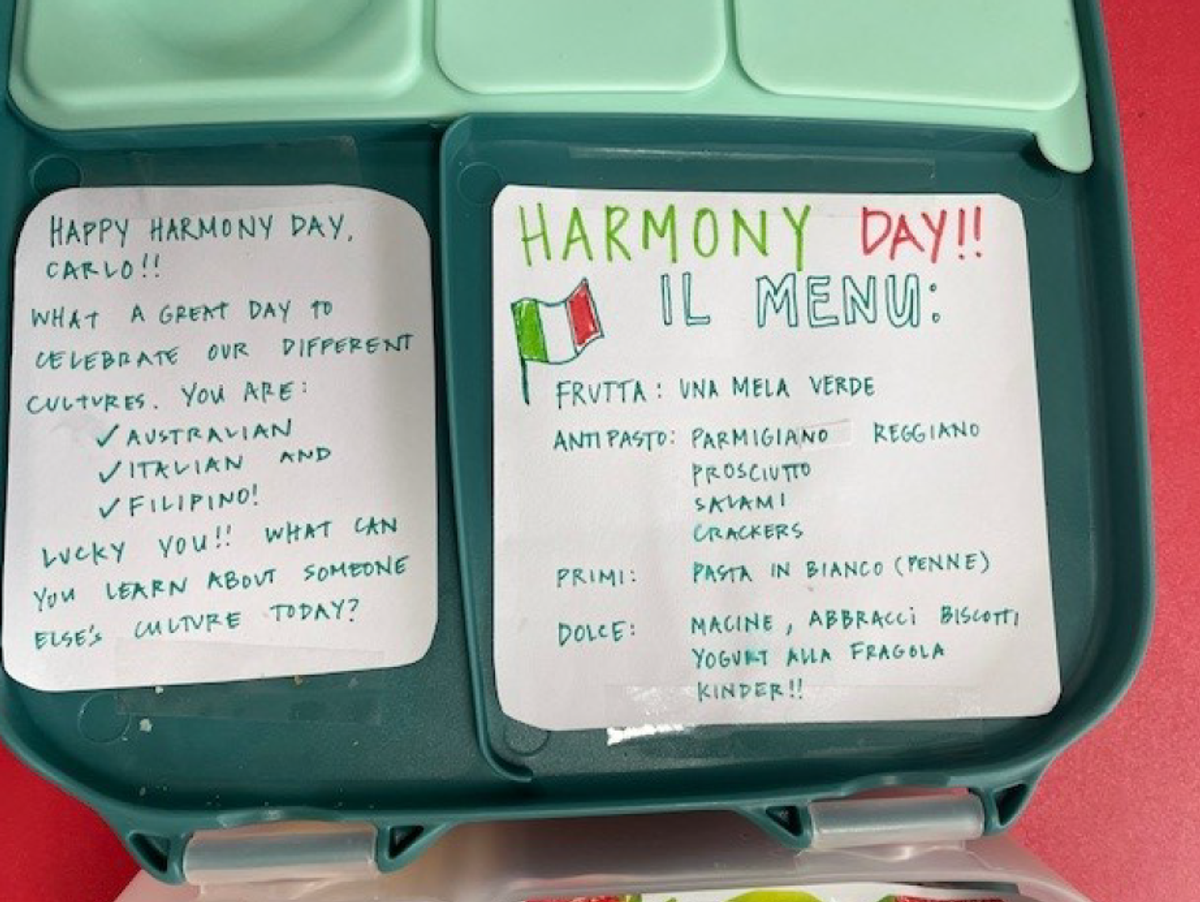 HAPPY HARMONY DAY,
CARLO!!
WHAT A GREAT DAY TO
CELEBRATE OUR DIFFERENT
CULTURES. YOU ARE:
✓ AUSTRALIAN
✓ ITALIAN AND
✓ FILIPINO!
LUCKY YOU!! WHAT CAN
YOU LEARN ABOUT SOMEONE
ELSE'S CULTURE TODAY?
HARMONY DAY!!
IL MENU:
FRUTTA: UNA MELA VERDE
ANTIPASTO: PARMIGIANO REGGIANO
PROSCIUTTO
SALAMI
CRACKERS
PRIMI: PASTA IN BIANCO (PENNE)
DOLCE: MACINE, ABBRACCI BISCOTTI,
YOGURT ALLA FRAGOLA
KINDER!!